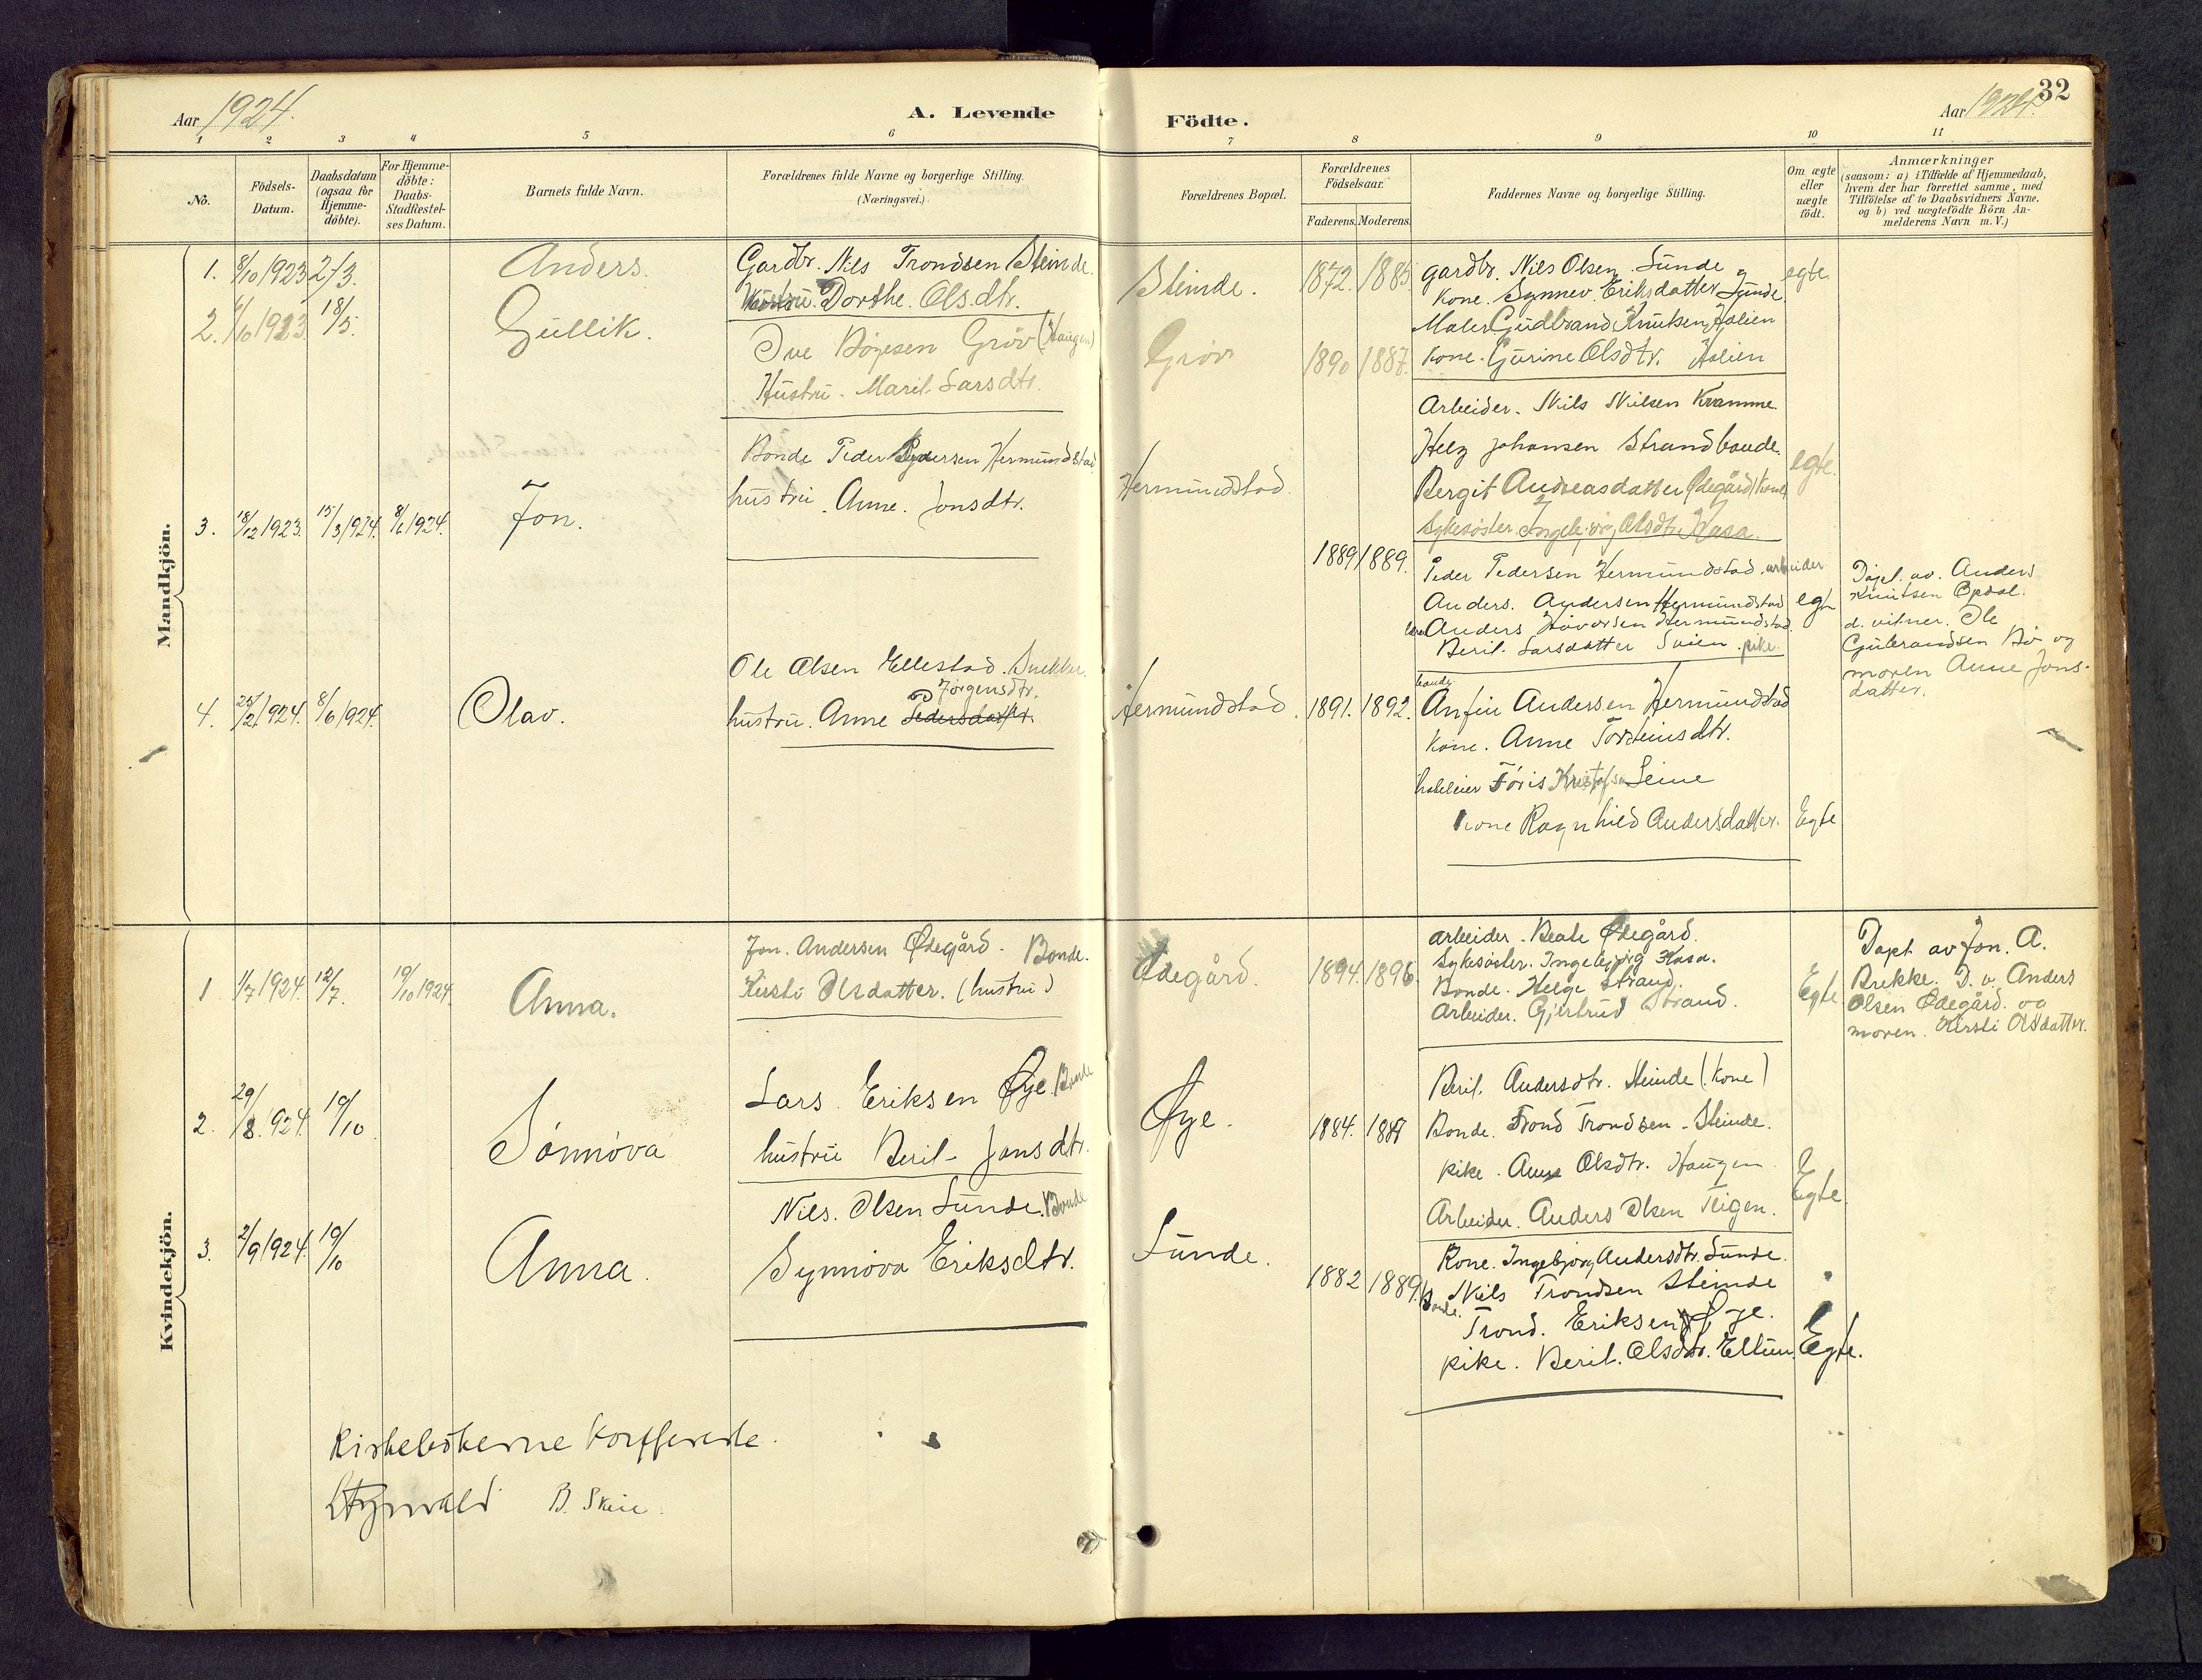 Aar 1924.
A. Levende
Födte.
Aar 1924.
32
1 2 3 4 5 6 7 8 9 10 11
No.
Födsels-
Datum.
Daabsdatum
(ogsaa for
Hjemme-
döbte).
For Hjemme-
döbte:
Daabs-
Stadfæstel-
ses Datum.
Barnets fulde Navn.
Forældrenes fulde Navne og borgerlige Stilling.
(Næringsvei.)
Forældrenes Bopæl.
Forældrenes
Födselsaar.
Faderens. Moderens.
Faddernes Navne og borgerlige Stilling.
Om ægte
eller
uægte
födt.
Anmærkninger
(saasom: a) i Tilfælde af Hjemmedaab,
hvem der har forrettet samme, med
Tilföielse af to Daabsvidners Navne,
og b) ved uægtefödte Börn An-
melderens Navn m. V.)
Mandkjön.
1. 8/10 1923 2/3. Anders.
Gardbr. Nils Trondsen Steinde.
Dorthe. Olsdtr.
Steinde. 1872. 1885
gardbr. Nils Olsen. Sunde og
kone. Synnev. Eriksdatter Sunde.
egte.
Maler Gudbrand Knutsen Holien
kone. Gurine Olsdtr. Holien
2. 6/10 1923 18/5. Gullik.
Ove Bøyesen Grøv (Haugen)
Hustru. Marit Larsdtr.
Grøv 1890 1887.
Arbeider. Nils Nilsen Kvamme.
Helg Johansen Strand bonde.
Bergit Andreasdatter Ødegård (kone)
Sykesøster Ingebjørg Olsdtr. Hasa.
egte.
3. 18/12 1923. 15/3 1924. 8/6 1924. Jon.
Bonde Peder Pedersen Hermundstad
hustru. Anne. Jonsdtr.
Hermundstad.
1889 1889.
Peder Pedersen Hermundstad. arbeider
Anders. Andersen Hermundstad
Anders Håvarsen Hermundstad.
Beril. Larsdatter Svien. pike.
egte
Døpt. av. Anders
Knutsen Opdal.
d. vitner. Ole
Gulbrandsen Bö og
moren Anne Jons-
datter.
4. 25/2 1924. 8/6 1924. Olav.
Ole Olsen Ellestad. Snekker.
Jørgensdtr.
hustru. Anne Pedersdatter.
Hermundstad. 1891. 1892.
bonde.
Anfin Andersen Hermundstad
kone. Anne Torsteinsdtr.
hoteleier Toris Kristofsen Leine
kone Ragnhild Andersdatter. Egte
Kvindekjön.
1 1/7 1924. 12/7. 19/10 1924. Anna.
Jon. Andersen Ødegård. Bonde.
Kirsti Olsdatter. (hustru)
Ødegård. 1894. 1896.
arbeider. Beate Ødegård.
Sykesøster. Ingebjørg Hasa.
Bonde. Helge Strand.
Arbeider. Gjertrud Strand.
Egte
Døpt av Jon. A.
Brekke. D. v. Anders
Olsen Ødegård. og
moren. Kirsti Olsdatter.
2. 29/8. 924. 19/10. Sønnøva
Lars. Eriksen Øye. Bonde
hustru Beril- Jonsdtr.
Øye. 1884. 1887
Beril. Andersdtr. Steinde (kone)
Bonde. Trond Trondsen - Steinde.
pike. Anne Olsdtr. Haugen.
Arbeider. Anders Olsen Teigen.
Egte.
3. 2/9 1924. 19/10 Anna.
Nils. Olsen Sunde. Bonde
Synnøva Eriksdtr.
Sunde. 1882 1889.
Kone. Ingebjørg Andersdtr. Sunde.
Bonde. Nils Trondsen Steinde
Trond. Eriksen Øye.
pike. Beril. Olsdtr. Ellun. Egte.
Kirkebøkerne konfererte.
B. Skeie.